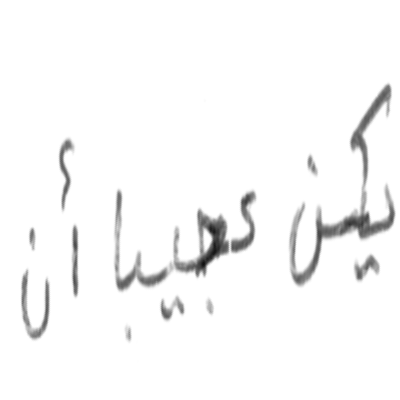 يكن عجيبا أن